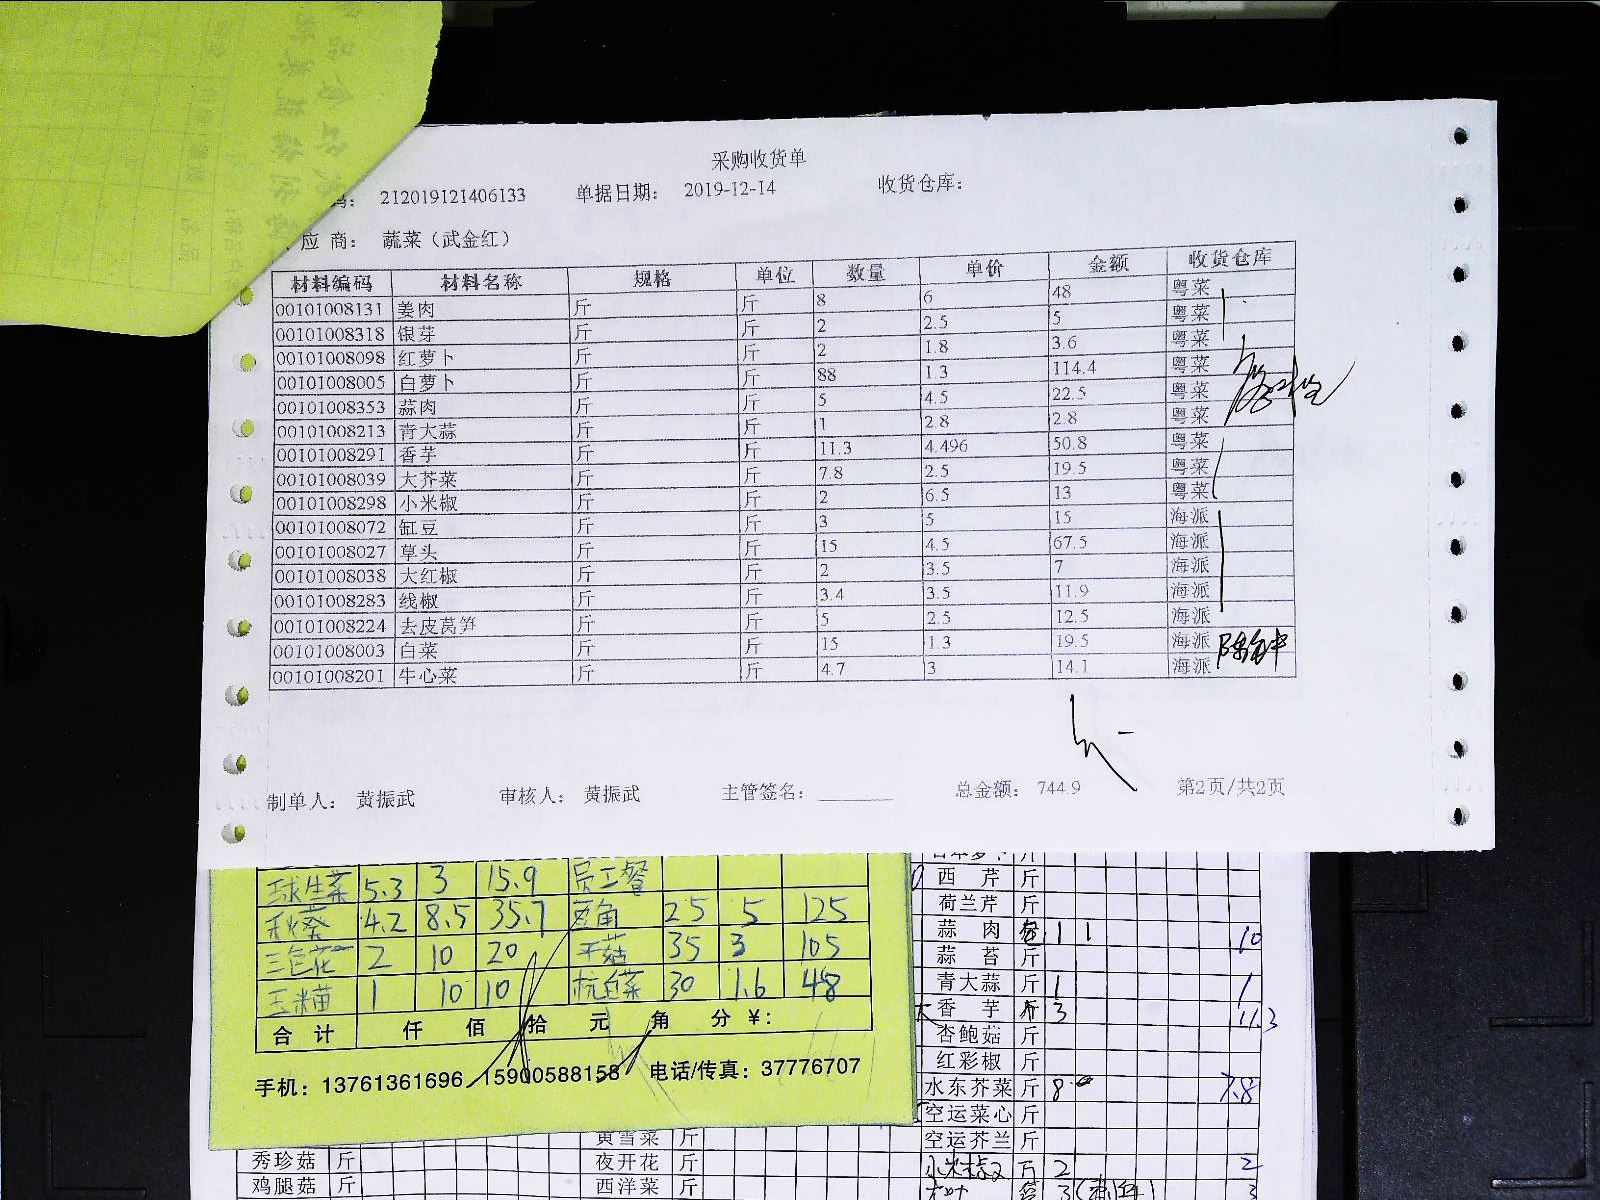 采购收货单
码： 212019121406133 单据日期： 2019-12-14 收货仓库：
应 商： 蔬菜（武金红）
材料编码 材料名称 规格 单位 数量 单价 金额 收货仓库
00101008131 姜肉 斤 斤 8 6 48 粤菜
00101008318 银芽 斤 斤 2 2.5 5 粤菜
00101008098 红萝卜 斤 斤 2 1.8 3.6 粤菜
00101008005 白萝卜 斤 斤 88 1.3 114.4 粤菜
00101008353 蒜肉 斤 斤 5 4.5 22.5 粤菜
00101008213 青大蒜 斤 斤 1 2.8 2.8 粤菜
00101008291 香芋 斤 斤 11.3 4.496 50.8 粤菜
00101008039 大芥菜 斤 斤 7.8 2.5 19.5 粤菜
00101008298 小米椒 斤 斤 2 6.5 13 粤菜
00101008072 缸豆 斤 斤 3 5 15 海派
00101008027 草头 斤 斤 15 4.5 67.5 海派
00101008038 大红椒 斤 斤 2 3.5 7 海派
00101008283 线椒 斤 斤 3.4 3.5 11.9 海派
00101008224 去皮莴笋 斤 斤 5 2.5 12.5 海派
00101008003 白菜 斤 斤 15 1.3 19.5 海派
00101008201 牛心菜 斤 斤 4.7 3 14.1 海派
制单人： 黄振武 审核人： 黄振武 主管签名： 总金额： 744.9 第2页/共2页
球生菜 5.3 3 15.9 员工餐
秋葵 4.2 8.5 35.7 豆角 25 5 125
三色花 2 10 20 平菇 35 3 105
玉米苗 1 10 10 杭白菜 30 1.6 48
合 计 仟 佰 拾 元 角 分 ¥：
手机：13761361696 15900588158 电话/传真：37776707
西 芹 斤
荷兰芹 斤
蒜 肉 包 1 1 10
蒜 苔 斤
青大蒜 斤 1 1
香 芋 斤 3 11.3
杏鲍菇 斤
红彩椒 斤
水东芥菜 斤 8 7.8
空运菜心 斤
空运芥兰 斤
黄雪菜 斤
秀珍菇 斤 夜开花 斤 小米椒 斤 2 2
鸡腿菇 斤 西洋菜 斤 3